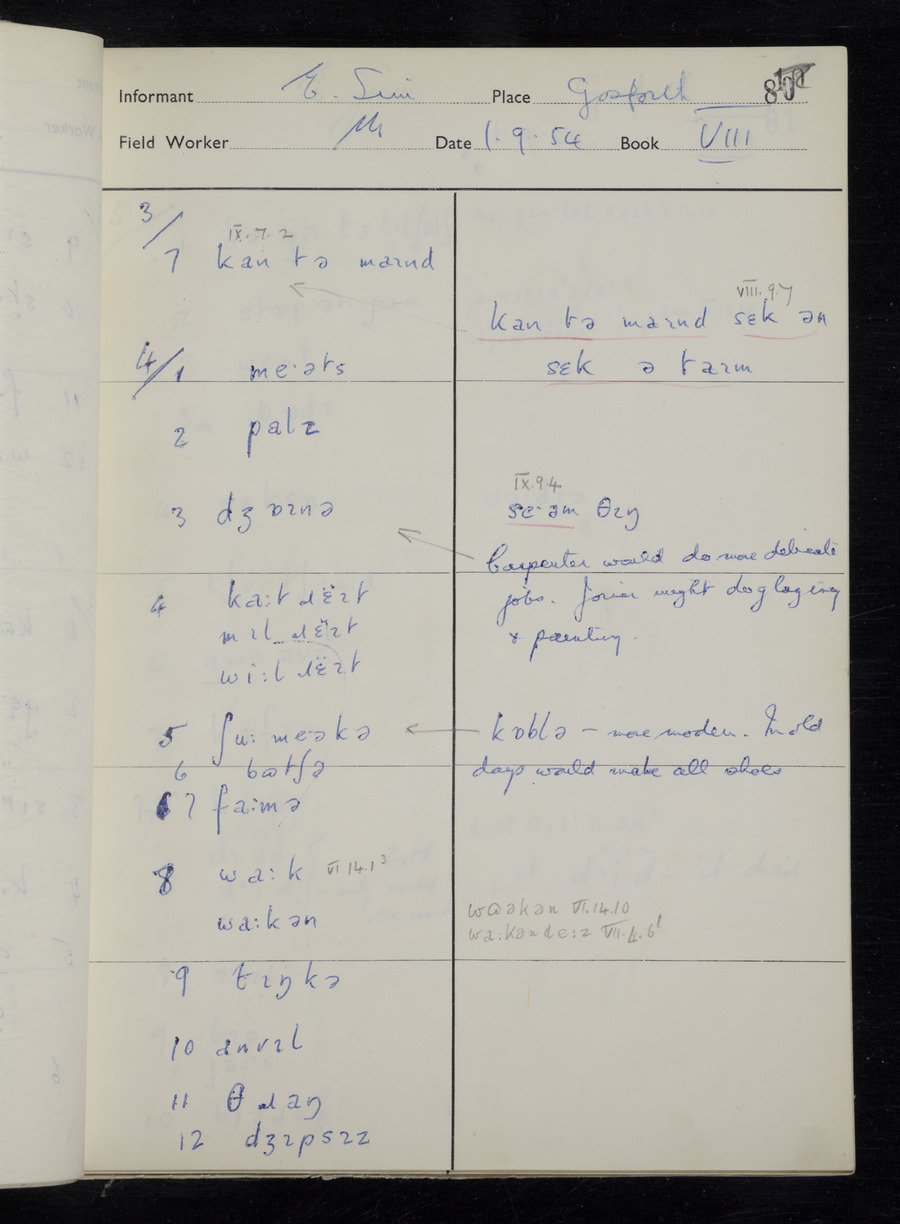 Informant E. Place Gosforth
Field Worker Date 1.9.54 Book VIII
3/
IX.7.2
7 kan tə maɪnd
VIII.9.7
kan tə maɪnd sɛk ən
sɛk ə taɪm
4/1 me·əts
2 palz
IX.9.4
3 dʒɒɪnə
sɛ·əm θɪŋ
Carpenter would do more delicate
jobs. Joiner might do glazing
& painting.
4 ka:t ɹëɪt
mɪl ɹëɪt
wi:l ɹëɪt
5 ʃu: meəkə
kɒblə – more modern. In old
days would make all shoes
6 bətʃə
7 fa:mə
8 wa:k VI.14.13
wa:kən
wɑəkən VI.14.10
wa:kənde:z VII.4.6
9 tɪŋkə
10 anvɪl
11 θɹaŋ
12 dʒɪpsɪz